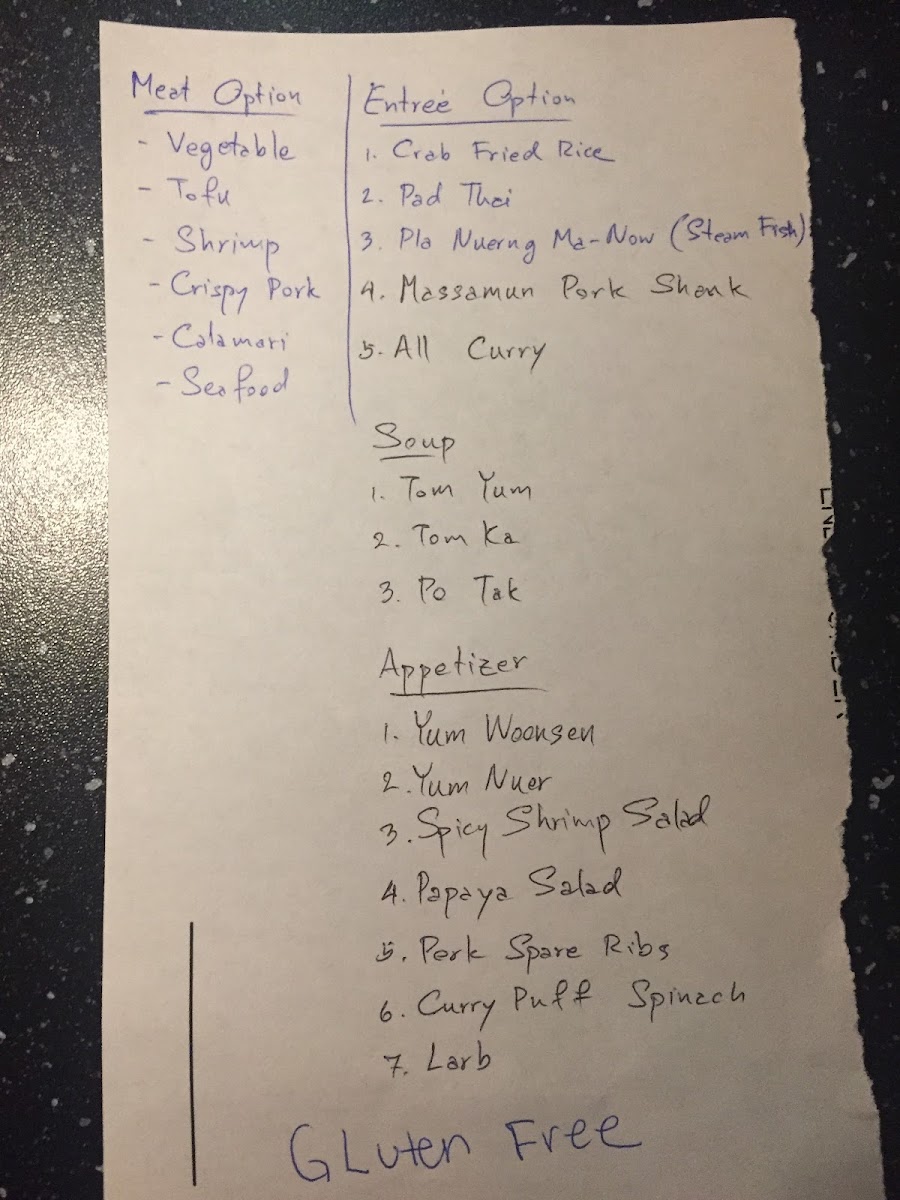 Meat Option
- Vegetable
- Tofu
- Shrimp
- Crispy Pork
- Calamari
- Seafood
Entreé Option
1. Crab Fried Rice
2. Pad Thai
3. Pla Nuerng Ma-Now (Steam Fish)
4. Massamun Pork Shank
5. All Curry
Soup
1. Tom Yum
2. Tom Ka
3. Po Tak
Appetizer
1. Yum Woonsen
2. Yum Nuer
3. Spicy Shrimp Salad
4. Papaya Salad
5. Pork Spare Ribs
6. Curry Puff Spinach
7. Larb
Gluten Free